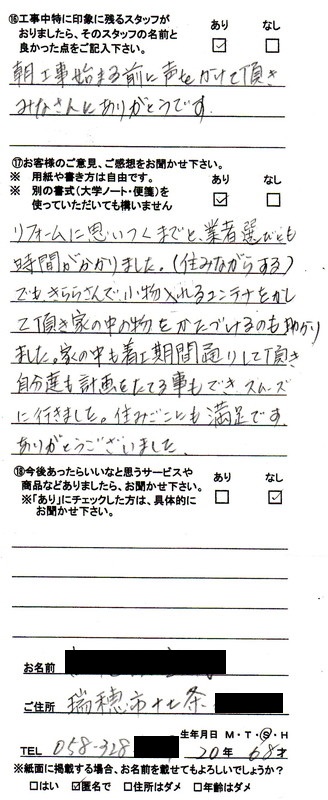 ⑯工事中特に印象に残るスタッフが
おりましたら、そのスタッフの名前と
良かった点をご記入下さい。
あり なし
☑ □
朝工事始まる前に声をかけて頂き
みなさんにありがとうです
⑰お客様のご意見、ご感想をお聞かせ下さい。
※ 用紙や書き方は自由です。
※ 別の書式(大学ノート・便箋)を
使っていただいても構いません
あり なし
☑ □
リフォームに思いつくまでと、業者選びにも
時間がかかりました。(住みながらする)
でもきららさんで小物入れるコンテナをかし
て頂き家の中の物をかたづけるのも助かり
ました。家の中も着工期間通りして頂き
自分達も計画をたてる事もでき スムーズ
に行きました。住みごこちも満足です。
ありがとうございました。
⑱今後あったらいいなと思うサービスや
商品などありましたら、お聞かせ下さい。
※「あり」にチェックした方は、具体的に
お聞かせ下さい。
あり なし
□ ☑
お名前
ご住所 瑞穂市十七条
生年月日 M・T・Ⓢ・H
TEL 058-328 20年 68才
※紙面に掲載する場合、お名前を載せてもよろしいでしょうか?
□はい ☑匿名で □住所はダメ □年齢はダメ